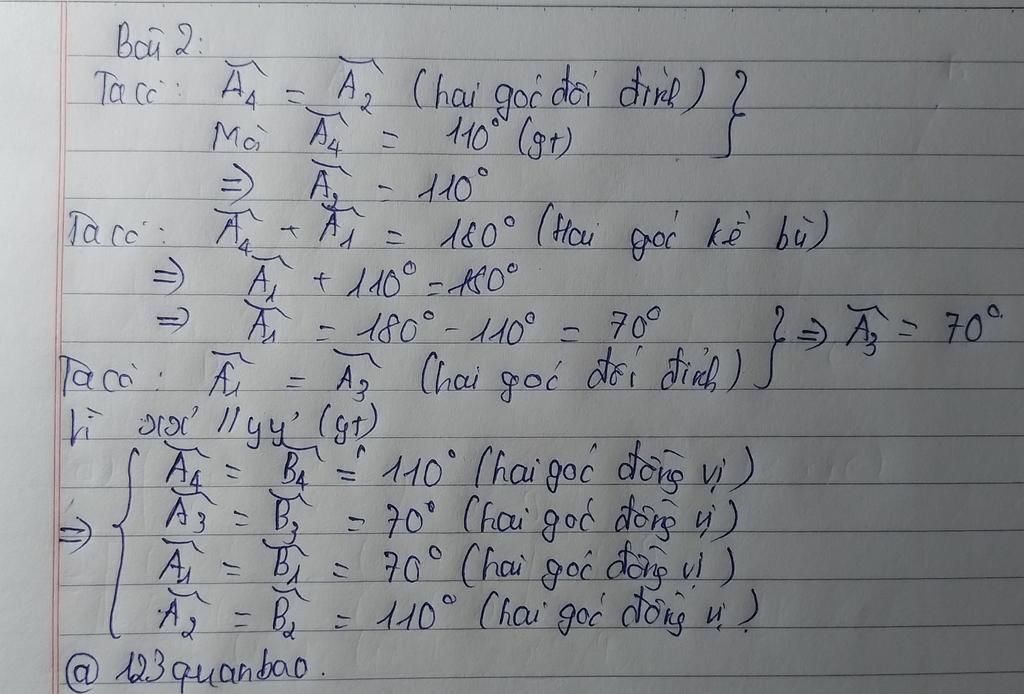 Bài 2:
Ta có: Â₄ = Â₂ (hai góc đối đỉnh)
Mà Â₄ = 110° (gt)
=> Â₂ = 110°
Ta có: Â₄ + Â₁ = 180° (Hai góc kề bù)
=> Â₁ + 110° = 180°
=> Â₁ = 180° - 110° = 70° } => Â₃ = 70°
Ta có: Â₁ = Â₃ (hai góc đối đỉnh)
Vì xx' // yy' (gt)
Â₄ = B̂₄ = 110° (hai góc đồng vị)
=> Â₃ = B̂₃ = 70° (hai góc đồng vị)
Â₁ = B̂₁ = 70° (hai góc đồng vị)
Â₂ = B̂₂ = 110° (hai góc đồng vị)
@ 123quanbao.